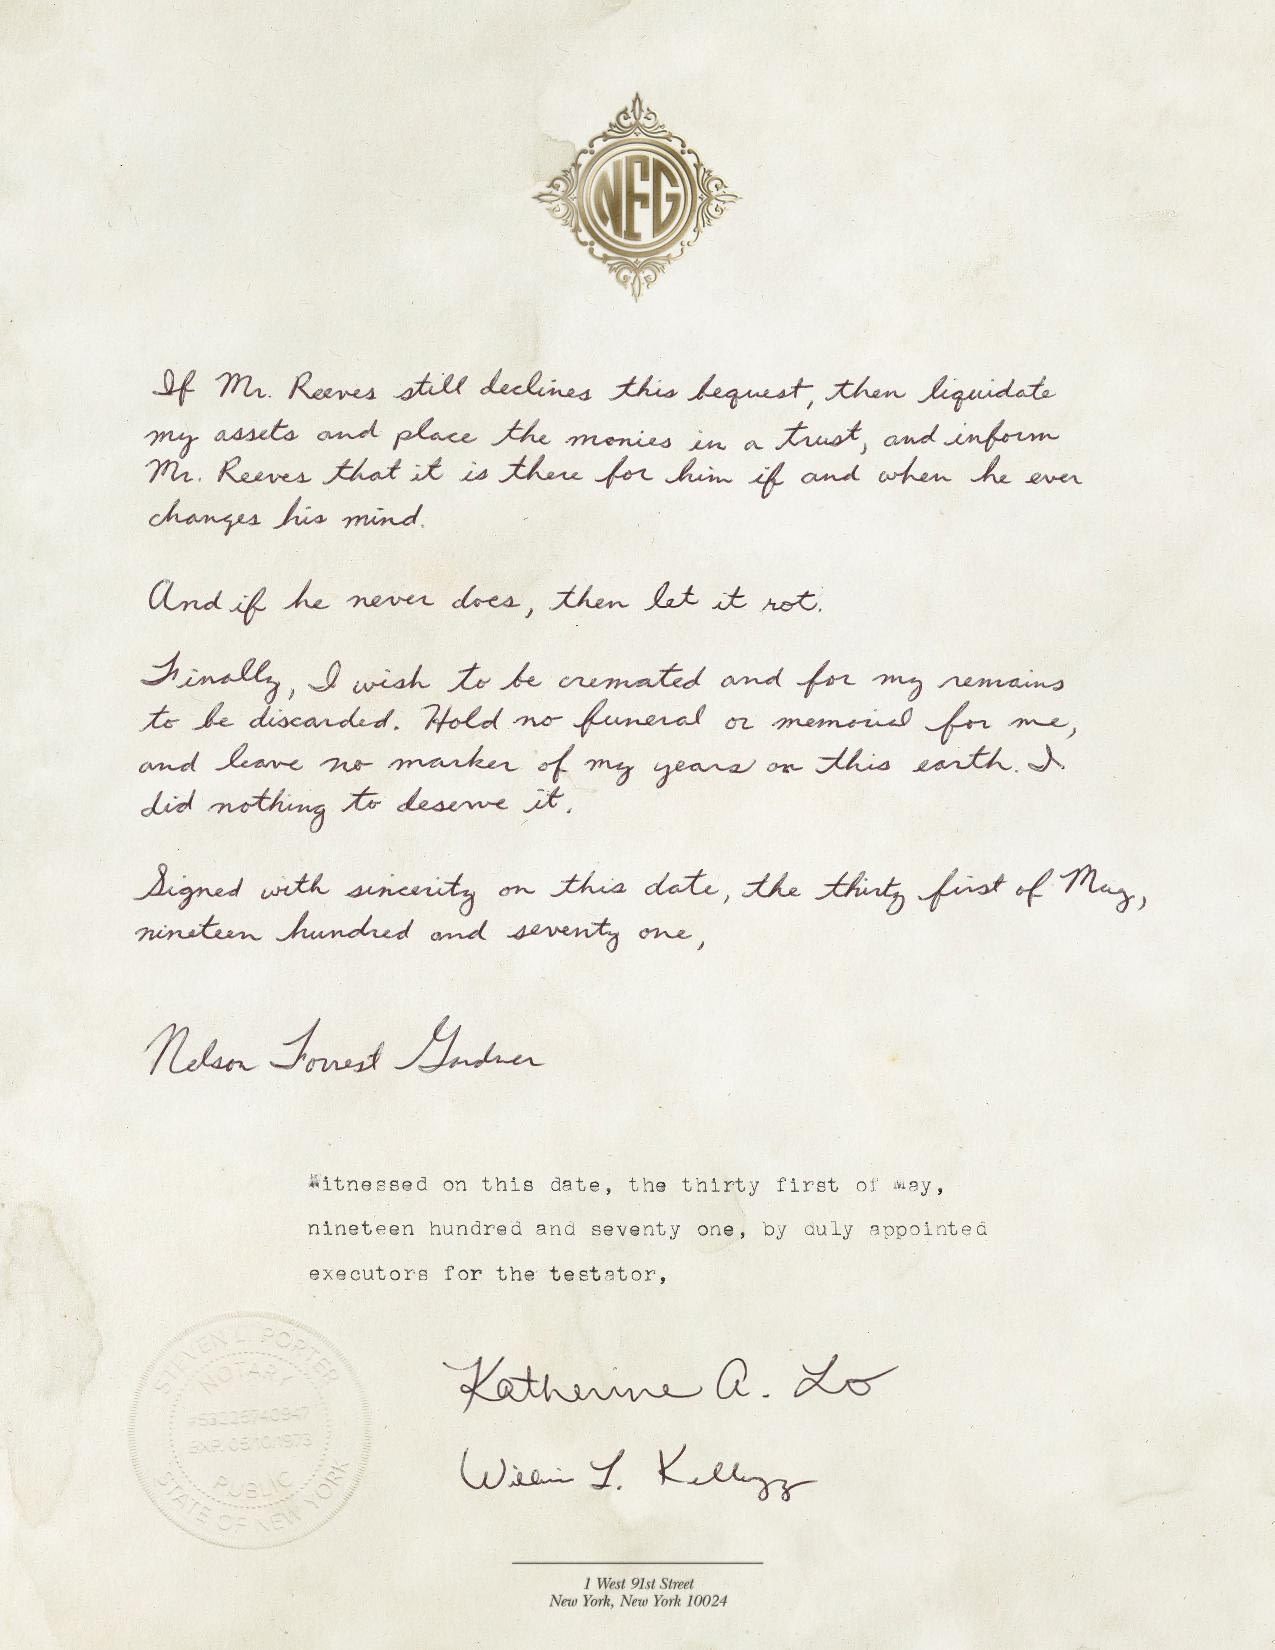 NFG
If Mr. Reeves still declines this bequest, then liquidate
my assets and place the monies in a trust, and inform
Mr. Reeves that it is there for him if and when he ever
changes his mind.
And if he never does, then let it rot.
Finally, I wish to be cremated and for my remains
to be discarded. Hold no funeral or memorial for me,
and leave no marker of my years on this earth. I
did nothing to deserve it.
Signed with sincerity on this date, the thirty first of May,
nineteen hundred and seventy one,
Nelson Forrest Gardner
Witnessed on this date, the thirty first of May,
nineteen hundred and seventy one, by duly appointed
executors for the testator,
STEVEN L. PORTER
NOTARY
EXP. 05/10/1973
PUBLIC
STATE OF NEW YORK
Katherine A. Lo
William L. Kellogg
1 West 91st Street
New York, New York 10024